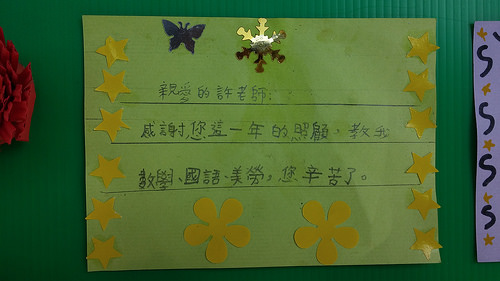 親愛的許老師：
感謝您這一年的照顧，教我
數學、國語、美勞，您辛苦了。
S
S
S
S